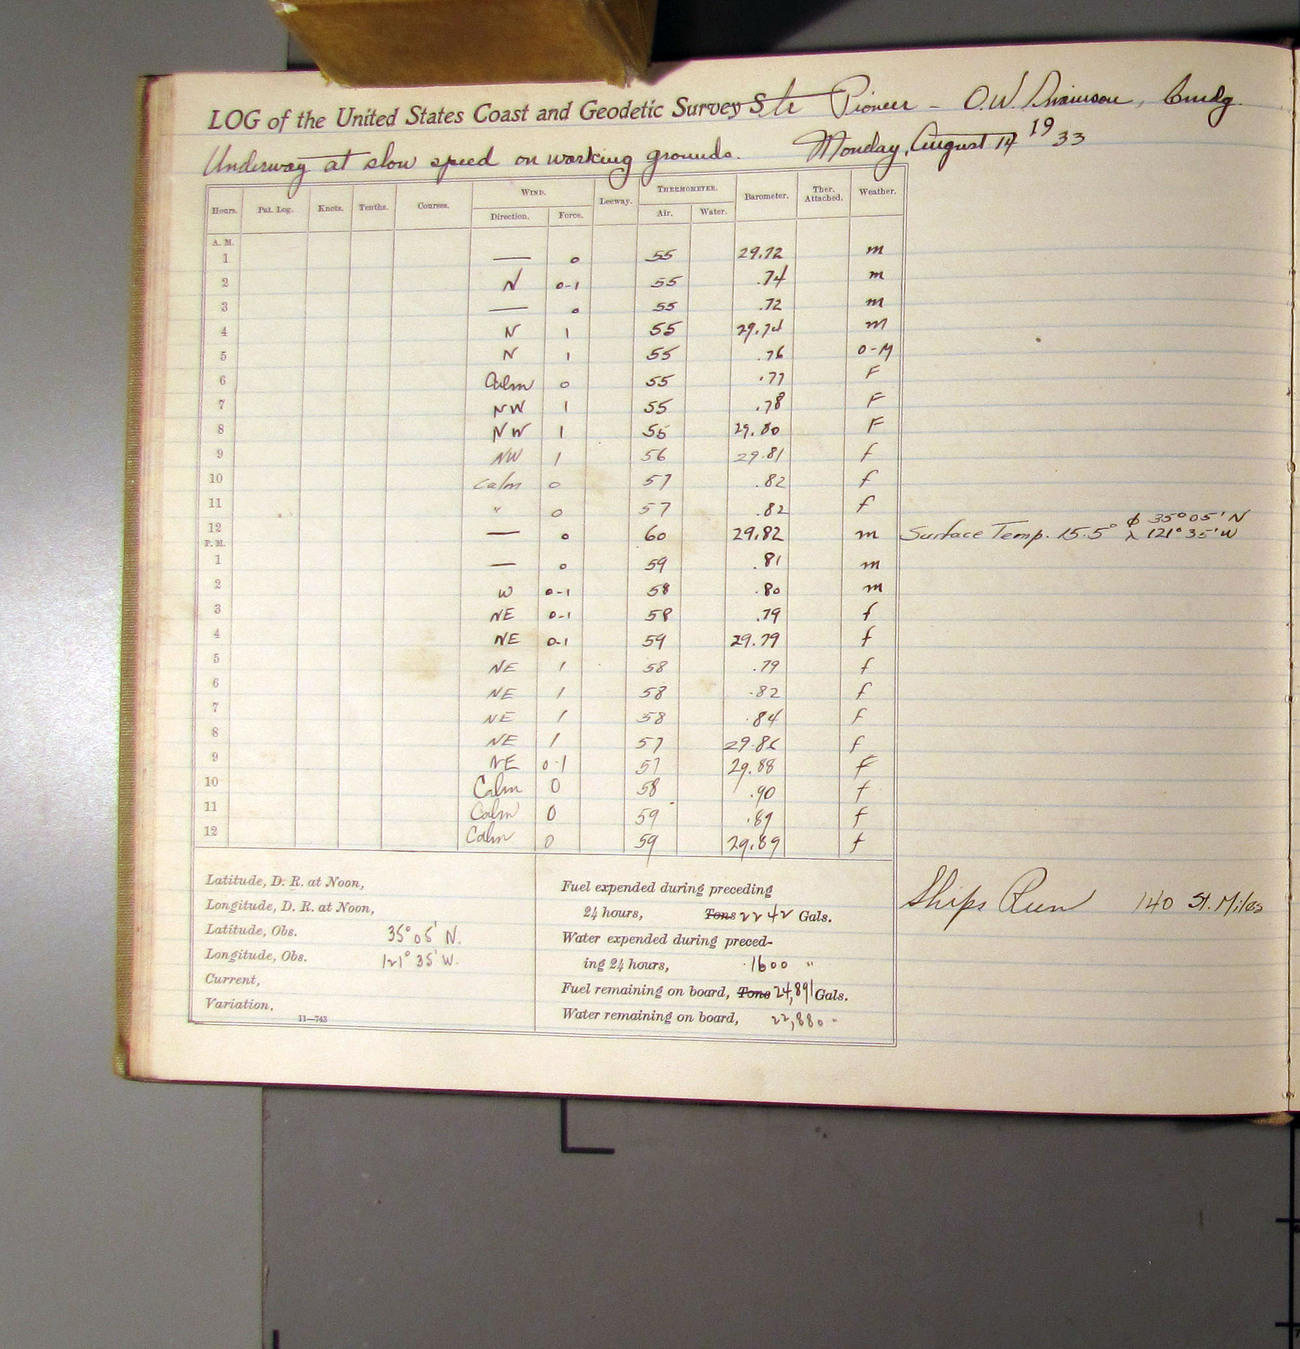 LOG of the United States Coast and Geodetic Survey Str Pioneer - O.W. Swainson, Cmdg.
Underway at slow speed on working grounds. Monday, August 14 1933
Hours. Pat. Log. Knots. Tenths. Courses. WIND. Leeway. THERMOMETER. Barometer. Ther. Attached. Weather.
Direction. Force. Air. Water.
A. M.
1 — 0 55 29.72 m
2 N 0-1 55 .74 m
3 — 0 55 .72 m
4 N 1 55 29.74 m
5 N 1 55 .76 O-M
6 Calm 0 55 .77 F
7 NW 1 55 .78 F
8 NW 1 55 29.80 F
9 NW 1 56 29.81 f
10 Calm 0 57 .82 f
11 " 0 57 .82 f
12 — 0 60 29.82 m Surface Temp. 15.5° φ 35° 05' N
λ 121° 35' W
P. M.
1 — 0 59 .81 m
2 W 0-1 58 .80 m
3 NE 0-1 58 .79 f
4 NE 0-1 59 29.79 f
5 NE 1 58 .79 f
6 NE 1 58 .82 f
7 NE 1 58 .84 f
8 NE 1 57 29.86 f
9 NE 0-1 57 29.88 f
10 Calm 0 58 .90 f
11 Calm 0 59 .89 f
12 Calm 0 59 29.89 f
Latitude, D. R. at Noon,
Longitude, D. R. at Noon,
Latitude, Obs. 35° 05' N.
Longitude, Obs. 121° 35' W.
Current,
Variation,
11—743
Fuel expended during preceding
24 hours, Tons 2242 Gals.
Water expended during preced-
ing 24 hours, 1600 "
Fuel remaining on board, Tons 24,891 Gals.
Water remaining on board, 22,880 -
Ships Run 140 St. Miles